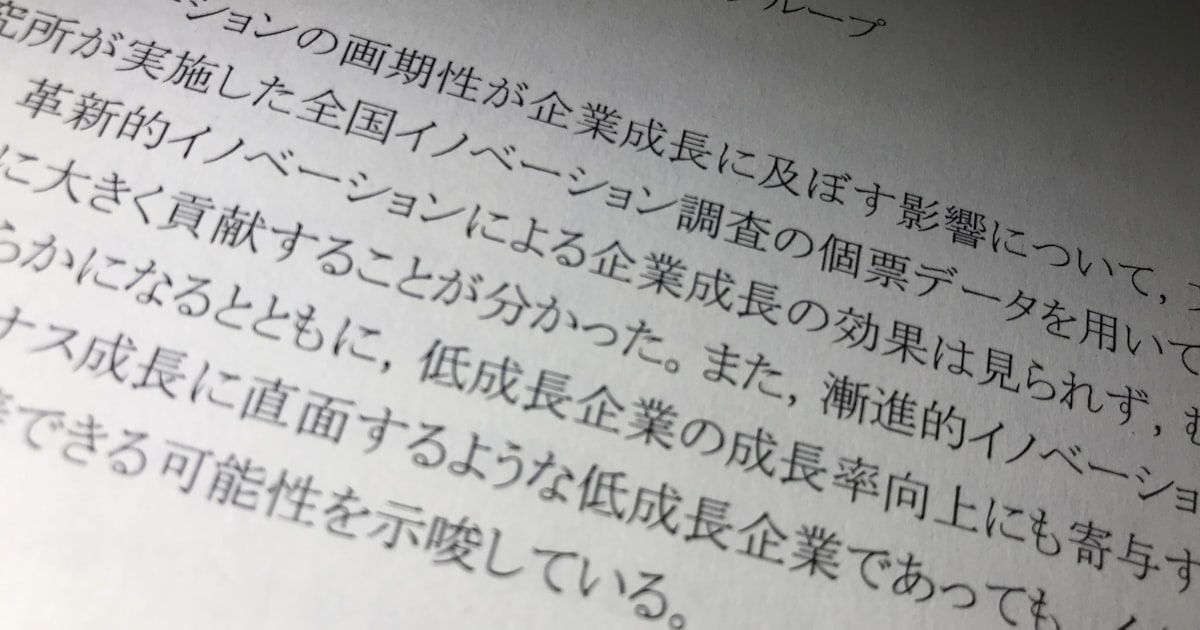 ループ
ーションの画期性が企業成長に及ぼす影響について,
究所が実施した全国イノベーション調査の個票データを用いて
革新的イノベーションによる企業成長の効果は見られず, む
に大きく貢献することが分かった。また, 漸進的イノベーショ
らかになるとともに, 低成長企業の成長率向上にも寄与す
ナス成長に直面するような低成長企業であっても,
できる可能性を示唆している。